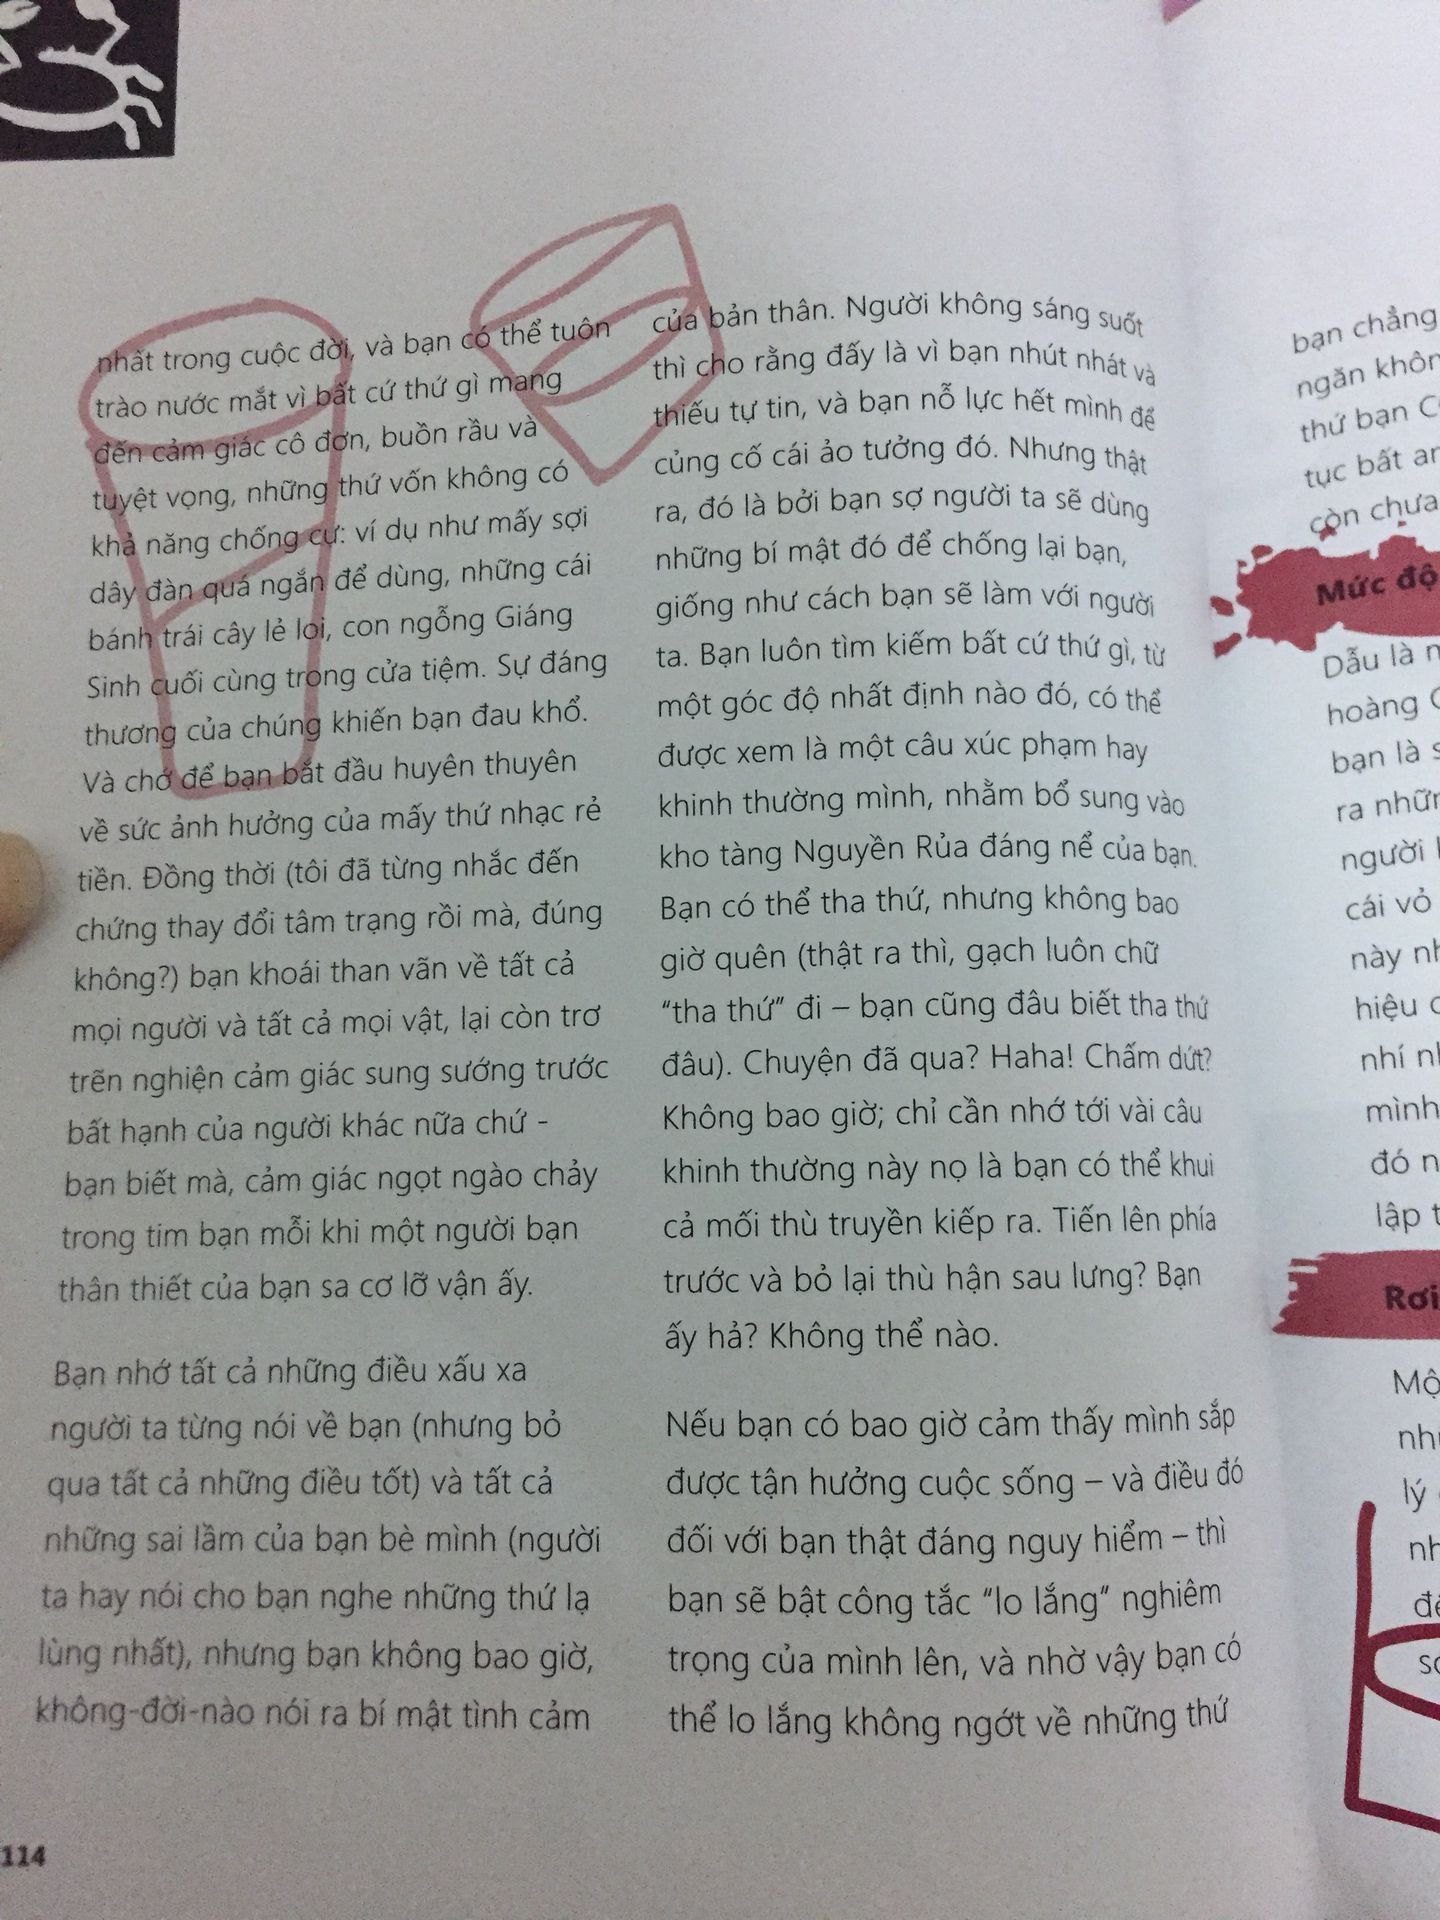 nhất trong cuộc đời, và bạn có thể tuôn
trào nước mắt vì bất cứ thứ gì mang
đến cảm giác cô đơn, buồn rầu và
tuyệt vọng, những thứ vốn không có
khả năng chống cự: ví dụ như mấy sợi
dây đàn quá ngắn để dùng, những cái
bánh trái cây lẻ loi, con ngỗng Giáng
Sinh cuối cùng trong cửa tiệm. Sự đáng
thương của chúng khiến bạn đau khổ.
Và chớ để bạn bắt đầu huyên thuyên
về sức ảnh hưởng của mấy thứ nhạc rẻ
tiền. Đồng thời (tôi đã từng nhắc đến
chứng thay đổi tâm trạng rồi mà, đúng
không?) bạn khoái than vãn về tất cả
mọi người và tất cả mọi vật, lại còn trơ
trẽn nghiện cảm giác sung sướng trước
bất hạnh của người khác nữa chứ -
bạn biết mà, cảm giác ngọt ngào chảy
trong tim bạn mỗi khi một người bạn
thân thiết của bạn sa cơ lỡ vận ấy.
Bạn nhớ tất cả những điều xấu xa
người ta từng nói về bạn (nhưng bỏ
qua tất cả những điều tốt) và tất cả
những sai lầm của bạn bè mình (người
ta hay nói cho bạn nghe những thứ lạ
lùng nhất), nhưng bạn không bao giờ,
không-đời-nào nói ra bí mật tình cảm
của bản thân. Người không sáng suốt
thì cho rằng đấy là vì bạn nhút nhát và
thiếu tự tin, và bạn nỗ lực hết mình để
củng cố cái ảo tưởng đó. Nhưng thật
ra, đó là bởi bạn sợ người ta sẽ dùng
những bí mật đó để chống lại bạn,
giống như cách bạn sẽ làm với người
ta. Bạn luôn tìm kiếm bất cứ thứ gì, từ
một góc độ nhất định nào đó, có thể
được xem là một câu xúc phạm hay
khinh thường mình, nhằm bổ sung vào
kho tàng Nguyền Rủa đáng nể của bạn.
Bạn có thể tha thứ, nhưng không bao
giờ quên (thật ra thì, gạch luôn chữ
“tha thứ” đi – bạn cũng đâu biết tha thứ
đâu). Chuyện đã qua? Haha! Chấm dứt?
Không bao giờ; chỉ cần nhớ tới vài câu
khinh thường này nọ là bạn có thể khui
cả mối thù truyền kiếp ra. Tiến lên phía
trước và bỏ lại thù hận sau lưng? Bạn
ấy hả? Không thể nào.
Nếu bạn có bao giờ cảm thấy mình sắp
được tận hưởng cuộc sống – và điều đó
đối với bạn thật đáng nguy hiểm – thì
bạn sẽ bật công tắc “lo lắng” nghiêm
trọng của mình lên, và nhờ vậy bạn có
thể lo lắng không ngớt về những thứ
114
bạn chẳng
ngăn
thứ bạn
tục bất
còn chưa
Mức độ
Dẫu là
hoàng
bạn là
ra
người
cái vỏ
này
hiệu
nhí
mình
đó
lập
Rơi
lý